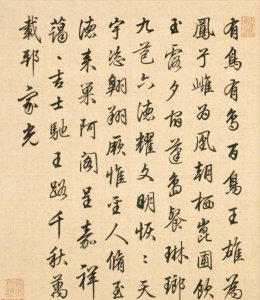 有鳥有鳥百鳥王雄為
鳳兮雌為凰朝棲崑圃飲
玉露夕宿蓬島餐琳瑯
九苞六德耀文明恢恢天
宇恣翱翔厥惟聖人脩至
德來巢阿閣呈嘉祥
藹藹吉士馳王路千秋萬
載耶家光